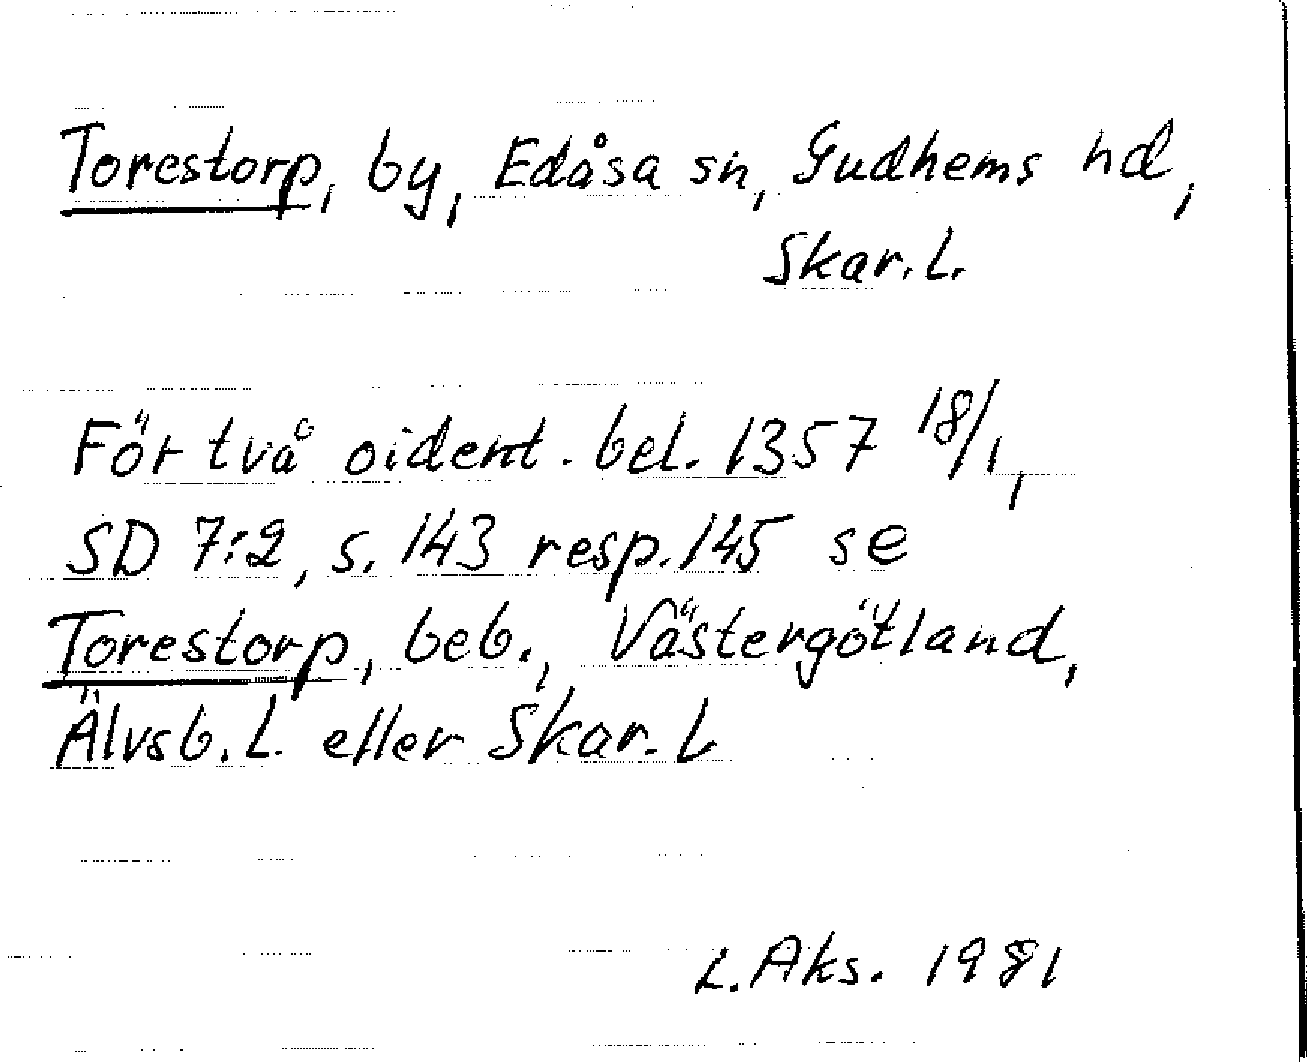 Torestorp, by, Edåsa sn, Gudhems hd,
Skar. L.
För två oident. bel. 1357 18/1,
SD 7:2, s. 143 resp. 145 se
Torestorp, beb., Västergötland,
Älvsb. L. eller Skar. L
L. Aks. 1981